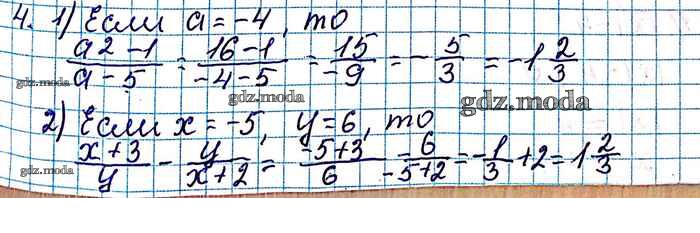 4. 1) Если a = -4, то
a2 -1 / a - 5 = 16 -1 / -4 -5 = 15 / -9 = - 5/3 = -1 2/3
gdz.moda gdz.moda gdz.moda
2) Если x = -5, y = 6, то
x+3 / y - y / x+2 = -5+3 / 6 - 6 / -5+2 = -1/3 + 2 = 1 2/3
gdz.moda gdz.moda